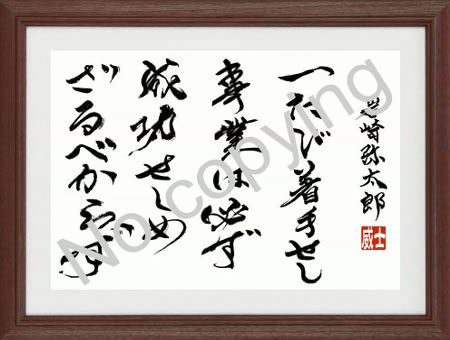 岩崎弥太郎
一たび着手せし
事業は必ず
成功せしめ
ざるべからず
威士
No copying